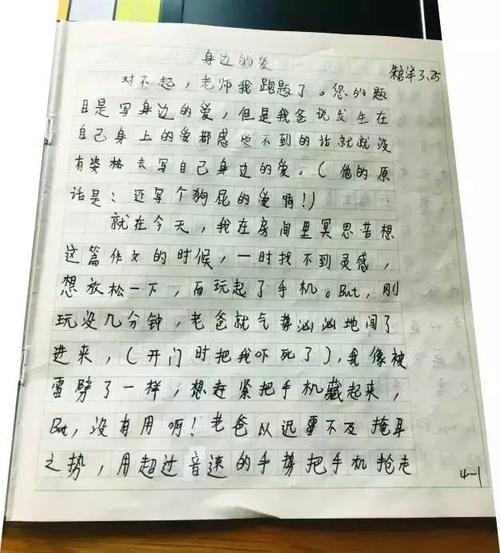 身边的爱
3.25
对不起，老师我跑题了。您的题
目是写身边的爱，但是我爸说发生在
自己身上的爱都感受不到的话就就没
有姿格去写自己身边的爱。（他的原
话是：还写个狗屁的爱啊！）
就在今天，我在房间里冥思苦想
这篇作文的时候，一时找不到灵感，
想放松一下，而玩起了手机。But，刚
玩没几分钟，老爸就气势汹汹地闯了
进来，（开门时把我吓死了），我像被
雷劈了一样，想赶紧把手机藏起来，
But，没有用啊！老爸从迅雷不及掩耳
之势，用超过音速的手势把手机抢走
4-1